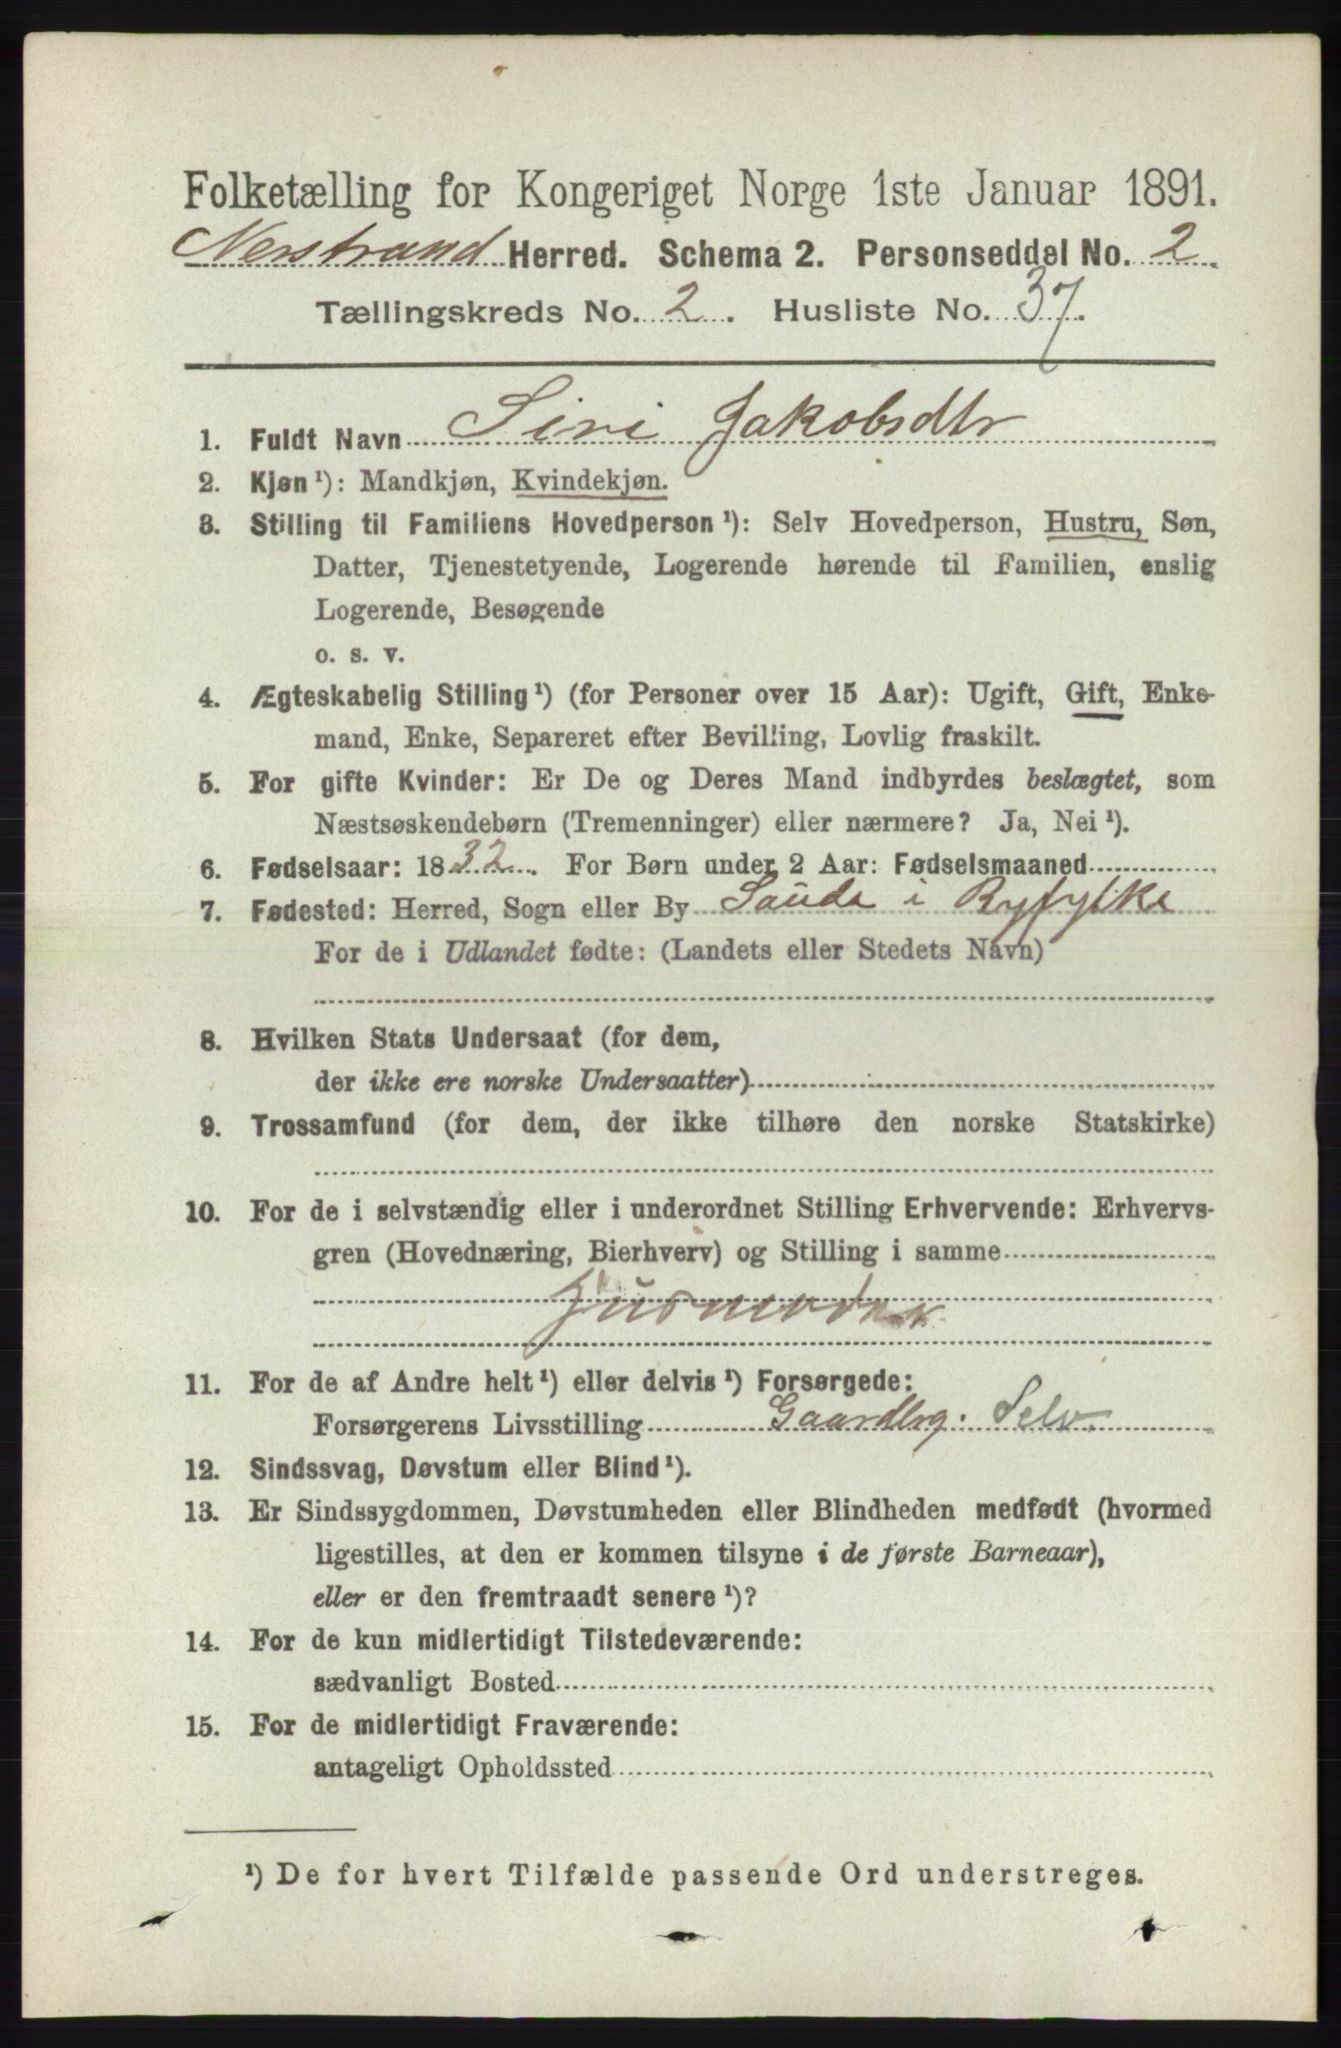 Folketælling for Kongeriget Norge 1ste Januar 1891.
Nerstrand Herred. Schema 2. Personseddel No. 2.
Tællingskreds No. 2. Husliste No. 37.
1. Fuldt Navn Siri Jakobsdtr
2. Kjøn ¹): Mandkjøn, Kvindekjøn.
3. Stilling til Familiens Hovedperson ¹): Selv Hovedperson, Hustru, Søn,
Datter, Tjenestetyende, Logerende hørende til Familien, enslig
Logerende, Besøgende
o. s. v.
4. Ægteskabelig Stilling ¹) (for Personer over 15 Aar): Ugift, Gift, Enke-
mand, Enke, Separeret efter Bevilling, Lovlig fraskilt.
5. For gifte Kvinder: Er De og Deres Mand indbyrdes beslægtet, som
Næstsøskendebørn (Tremenninger) eller nærmere? Ja, Nei ¹).
6. Fødselsaar: 1832. For Børn under 2 Aar: Fødselsmaaned
7. Fødested: Herred, Sogn eller By Sauda i Ryfylke
For de i Udlandet fødte: (Landets eller Stedets Navn)
8. Hvilken Stats Undersaat (for dem,
der ikke ere norske Undersaatter)
9. Trossamfund (for dem, der ikke tilhøre den norske Statskirke)
10. For de i selvstændig eller i underordnet Stilling Erhvervende: Erhvervs-
gren (Hovednæring, Bierhverv) og Stilling i samme
Husmoder
11. For de af Andre helt ¹) eller delvis ¹) Forsørgede:
Forsørgerens Livsstilling Gaardbrg. Selv.
12. Sindssvag, Døvstum eller Blind ¹).
13. Er Sindssygdommen, Døvstumheden eller Blindheden medfødt (hvormed
ligestilles, at den er kommen tilsyne i de første Barneaar),
eller er den fremtraadt senere ¹)?
14. For de kun midlertidigt Tilstedeværende:
sædvanligt Bosted
15. For de midlertidigt Fraværende:
antageligt Opholdssted
¹) De for hvert Tilfælde passende Ord understreges.